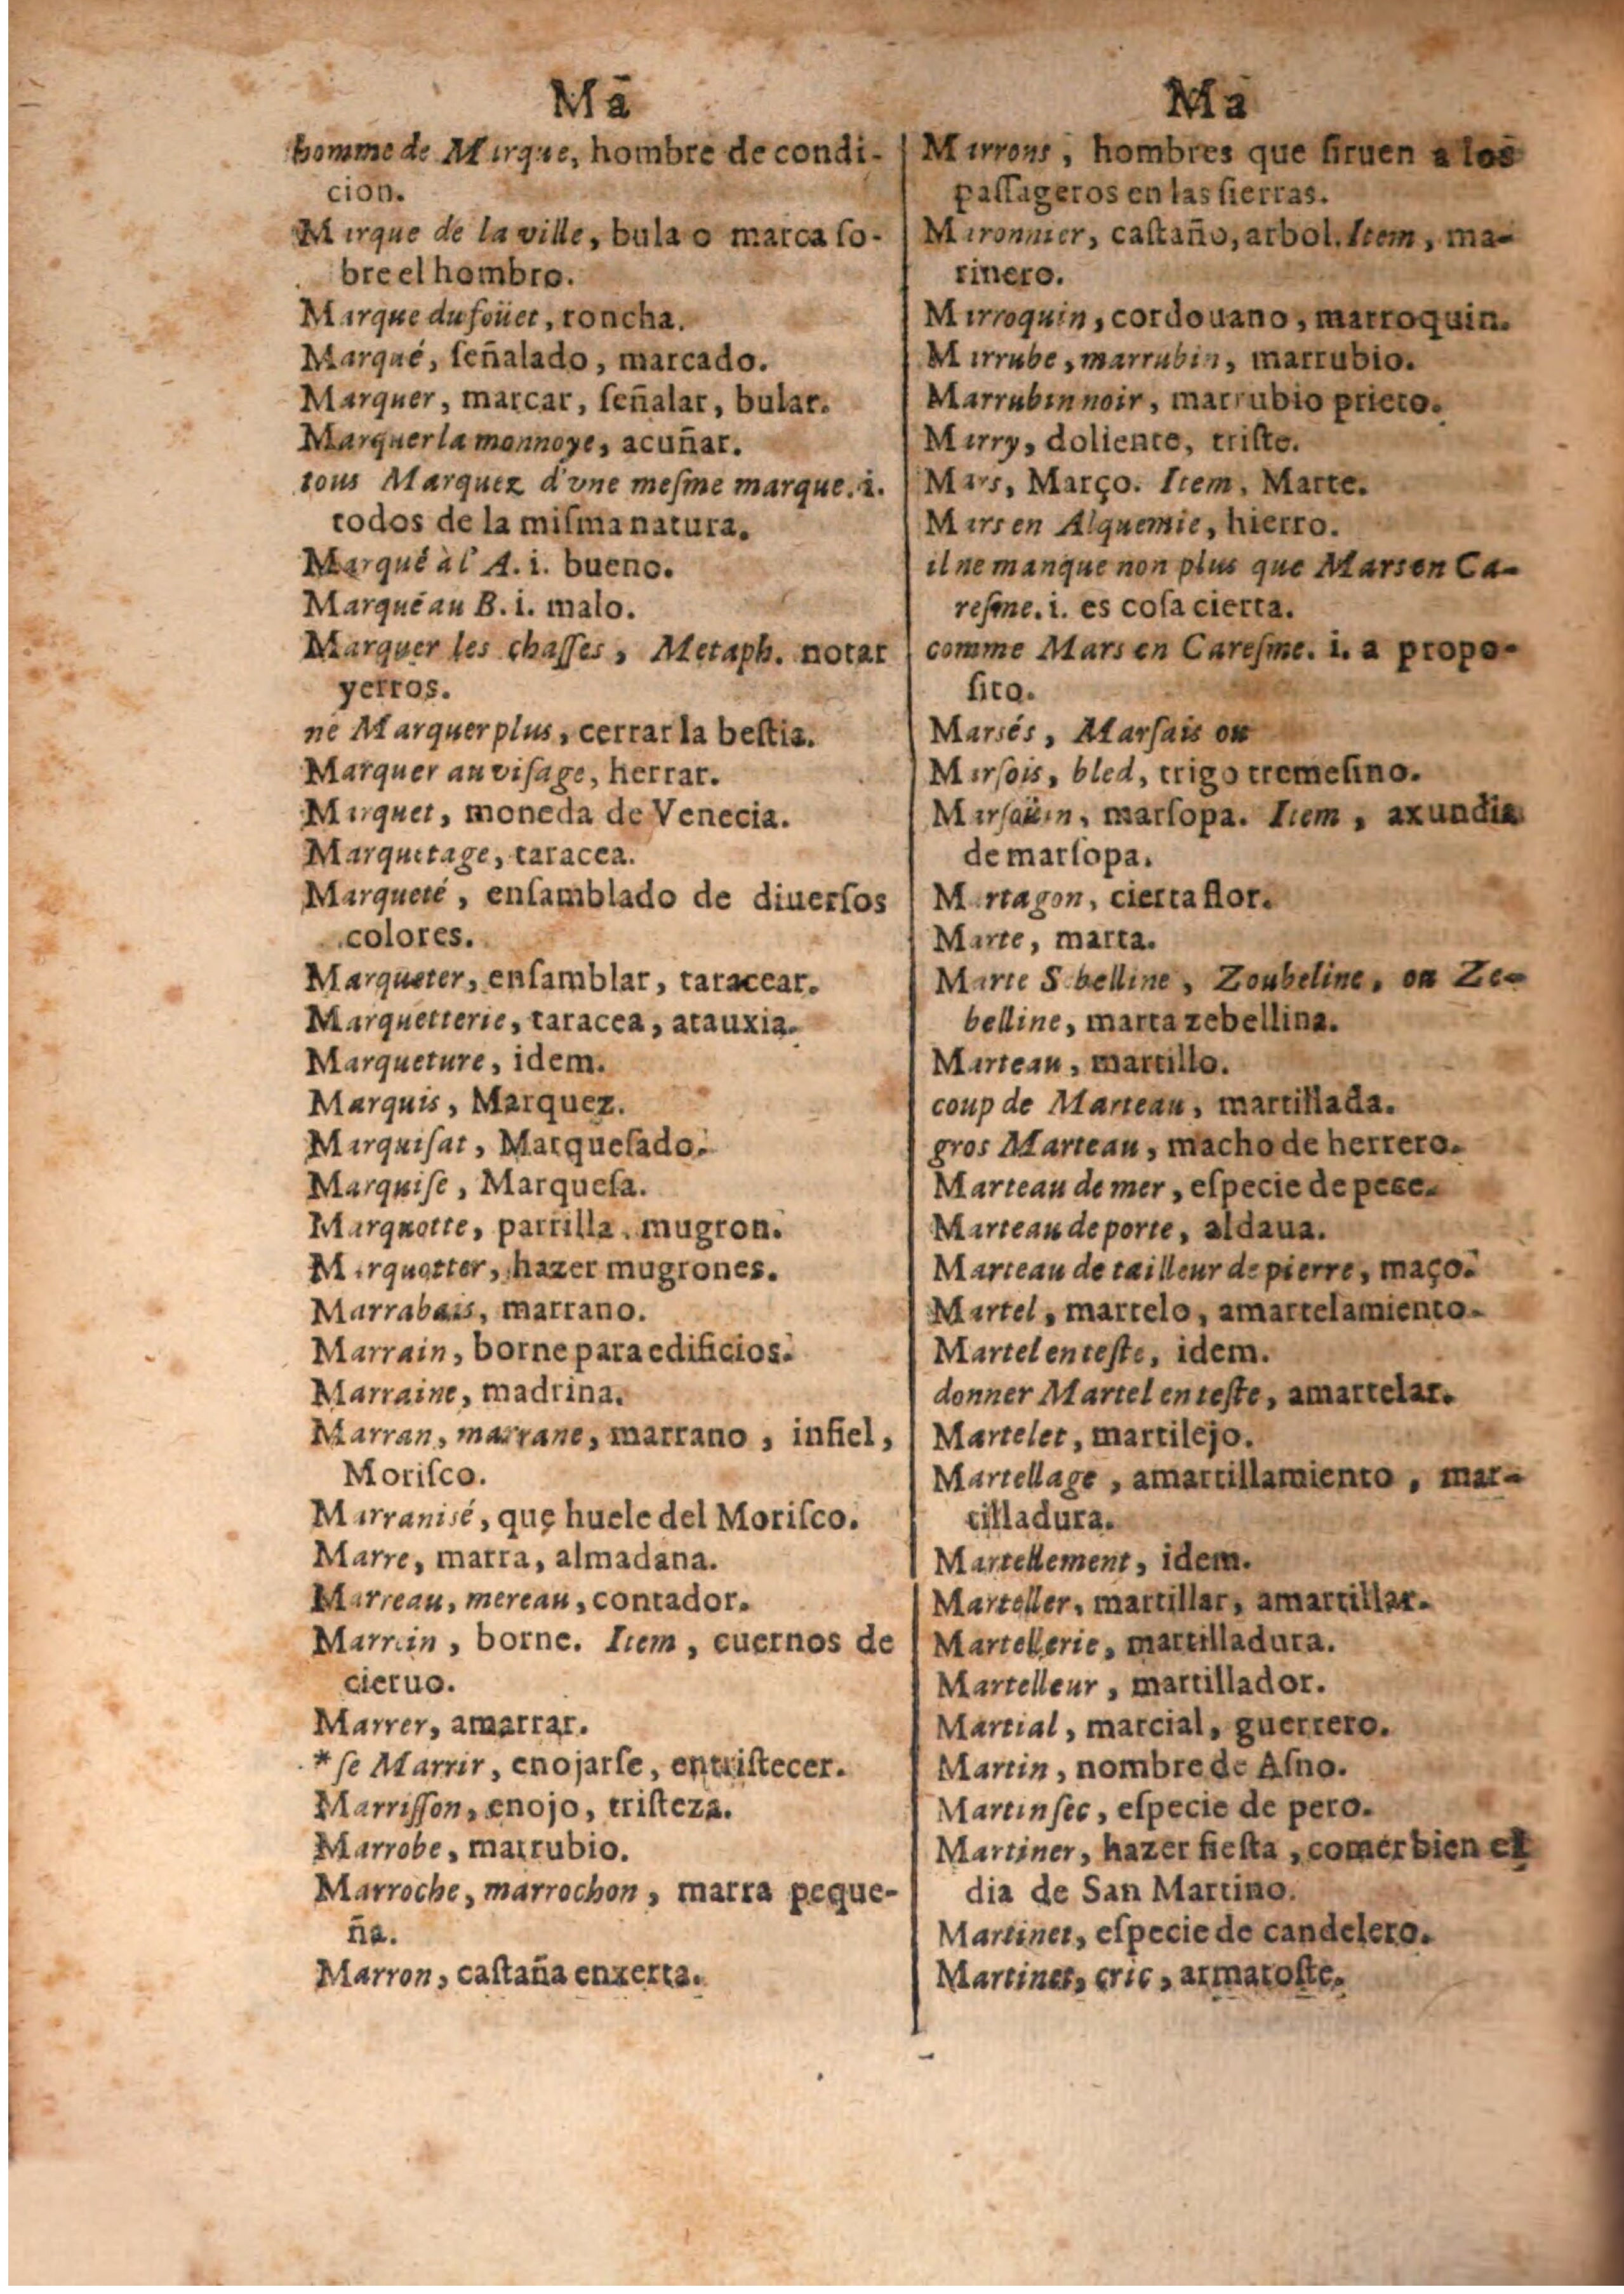 Ma
homme de Marque, hombre de condi-
cion.
Marque de la ville, bula o marca ſo-
bre el hombro.
Marque du foüet, roncha.
Marqué, ſeñalado, marcado.
Marquer, marcar, ſeñalar, bular.
Marquer la monnoye, acuñar.
tous Marquez d'vne meſme marque. i.
todos de la miſma natura.
Marqué à l'A. i. bueno.
Marqué au B. i. malo.
Marquer les chaſſes, Metaph. notar
yerros.
ne Marquer plus, cerrar la beſtia.
Marquer au viſage, herrar.
Marquet, moneda de Venecia.
Marquetage, taracea.
Marqueté, enſamblado de diuerſos
colores.
Marqueter, enſamblar, taracear.
Marquetterie, taracea, atauxia.
Marqueture, idem.
Marquis, Marquez.
Marquiſat, Marqueſado.
Marquiſe, Marqueſa.
Marquotte, parrilla, mugron.
Marquotter, hazer mugrones.
Marrabais, marrano.
Marrain, borne para edificios.
Marraine, madrina.
Marran, marrane, marrano, infiel,
Moriſco.
Marranisé, que huele del Moriſco.
Marre, marra, almadana.
Marreau, mereau, contador.
Marrein, borne. Item, cuernos de
cieruo.
Marrer, amarrar.
* ſe Marrir, enojarſe, entriſtecer.
Marriſſon, enojo, triſteza.
Marrobe, marrubio.
Marroche, marrochon, marra peque-
ña.
Marron, caſtaña enxerta.
Ma
Marrons, hombres que ſiruen a los
paſſageros en las ſierras.
Maronnier, caſtaño, arbol. Item, ma-
rinero.
Marroquin, cordouano, marroquin.
Marrube, marrubin, marrubio.
Marrubin noir, marrubio prieto.
Marry, doliente, triſte.
Mars, Março. Item, Marte.
Mars en Alquemie, hierro.
il ne manque non plus que Mars en Ca-
reſme. i. es coſa cierta.
comme Mars en Careſme. i. a propo-
ſito.
Marsés, Marſais ou
Marſois, bled, trigo tremeſino.
Marſoüin, marſopa. Item, axundia
de marſopa.
Martagon, cierta flor.
Marte, marta.
Marte Sebelline, Zoubeline, ou Ze-
belline, marta zebellina.
Marteau, martillo.
coup de Marteau, martillada.
gros Marteau, macho de herrero.
Marteau de mer, eſpecie de pece.
Marteau de porte, aldaua.
Marteau de tailleur de pierre, maço.
Martel, martelo, amartelamiento.
Martel en teſte, idem.
donner Martel en teſte, amartelar.
Martelet, martilejo.
Martellage, amartillamiento, mar-
tilladura.
Martellement, idem.
Marteller, martillar, amartillar.
Martellerie, martilladura.
Martelleur, martillador.
Martial, marcial, guerrero.
Martin, nombre de Aſno.
Martin ſec, eſpecie de pero.
Martiner, hazer fieſta, comer bien el
dia de San Martino.
Martinet, eſpecie de candelero.
Martinet, cric, armatoſte.